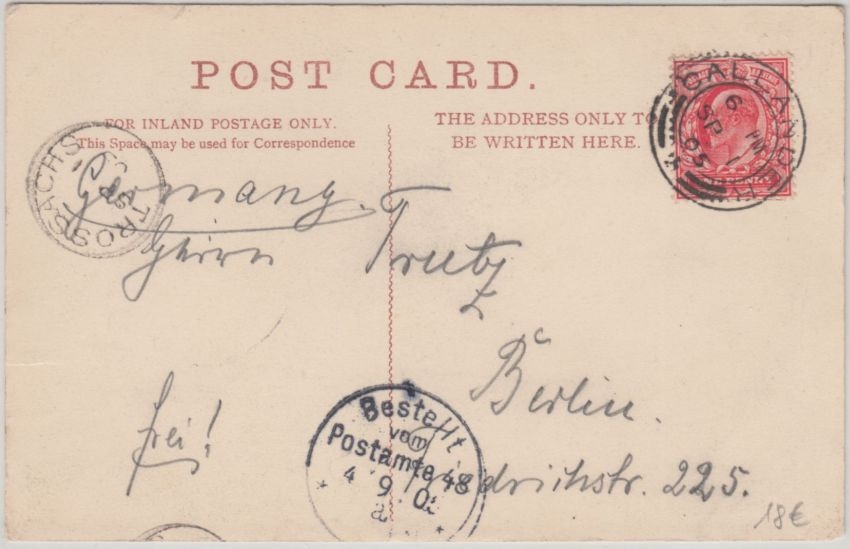 POST CARD.
FOR INLAND POSTAGE ONLY.
This Space may be used for Correspondence
THE ADDRESS ONLY TO
BE WRITTEN HERE.
CALLANDER
6 PM
SP 1
05
TROSSACHS
SP
Germany.
Herrn Trutz
Berlin.
Friedrichstr. 225.
frei!
Bestellt
vom
Postamte 48
4 9 05
18€